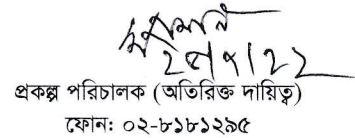 প্রকল্প পরিচালক (অতিরিক্ত দায়িত্ব)
ফোন: ০২-৮১৮১২৯৫